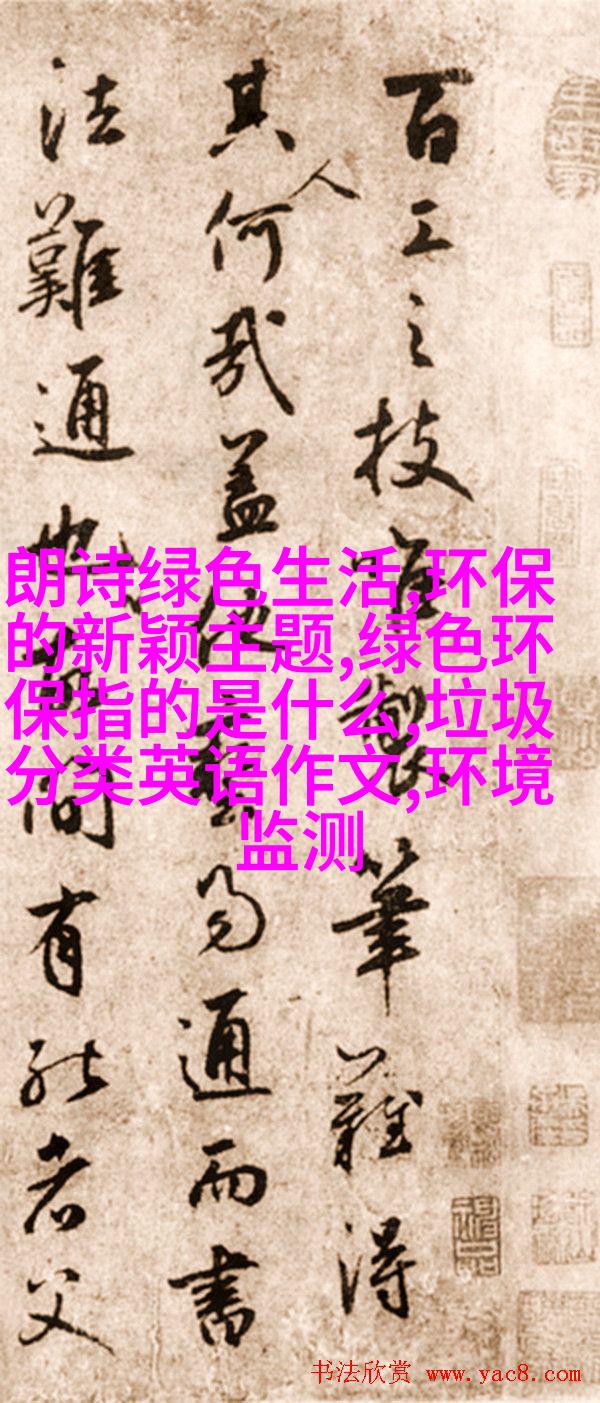 百工之技唯製筆難得
其人何哉蓋藝易通而書
法難通也間有能者父
朗诗绿色生活,环保
的新颖主题,绿色环
保指的是什么,垃圾
分类英语作文,环境
监测
书法欣赏 www.yac8.com